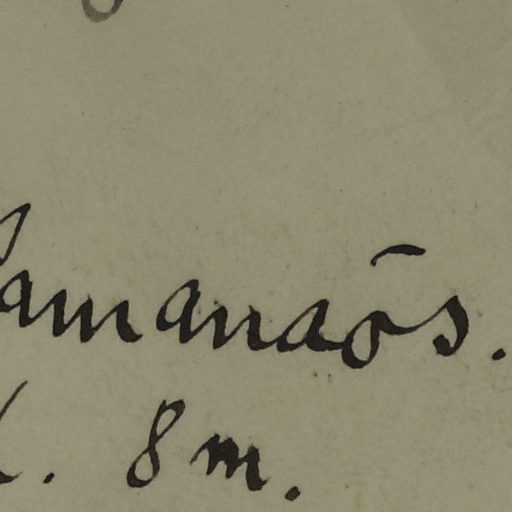 Camanaōs.
. 8 m.